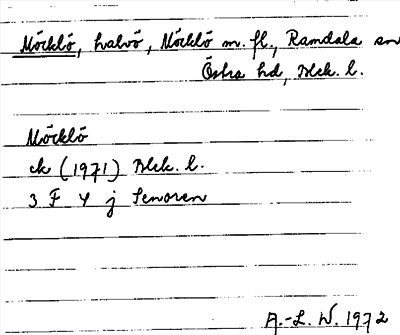 Möcklö, halvö, Möcklö m. fl., Ramdala sn
Östra hd, Blek. l.
Möcklö
ek (1971) Blek. l.
3 F 4 j Senoren
A.-L. W. 1972